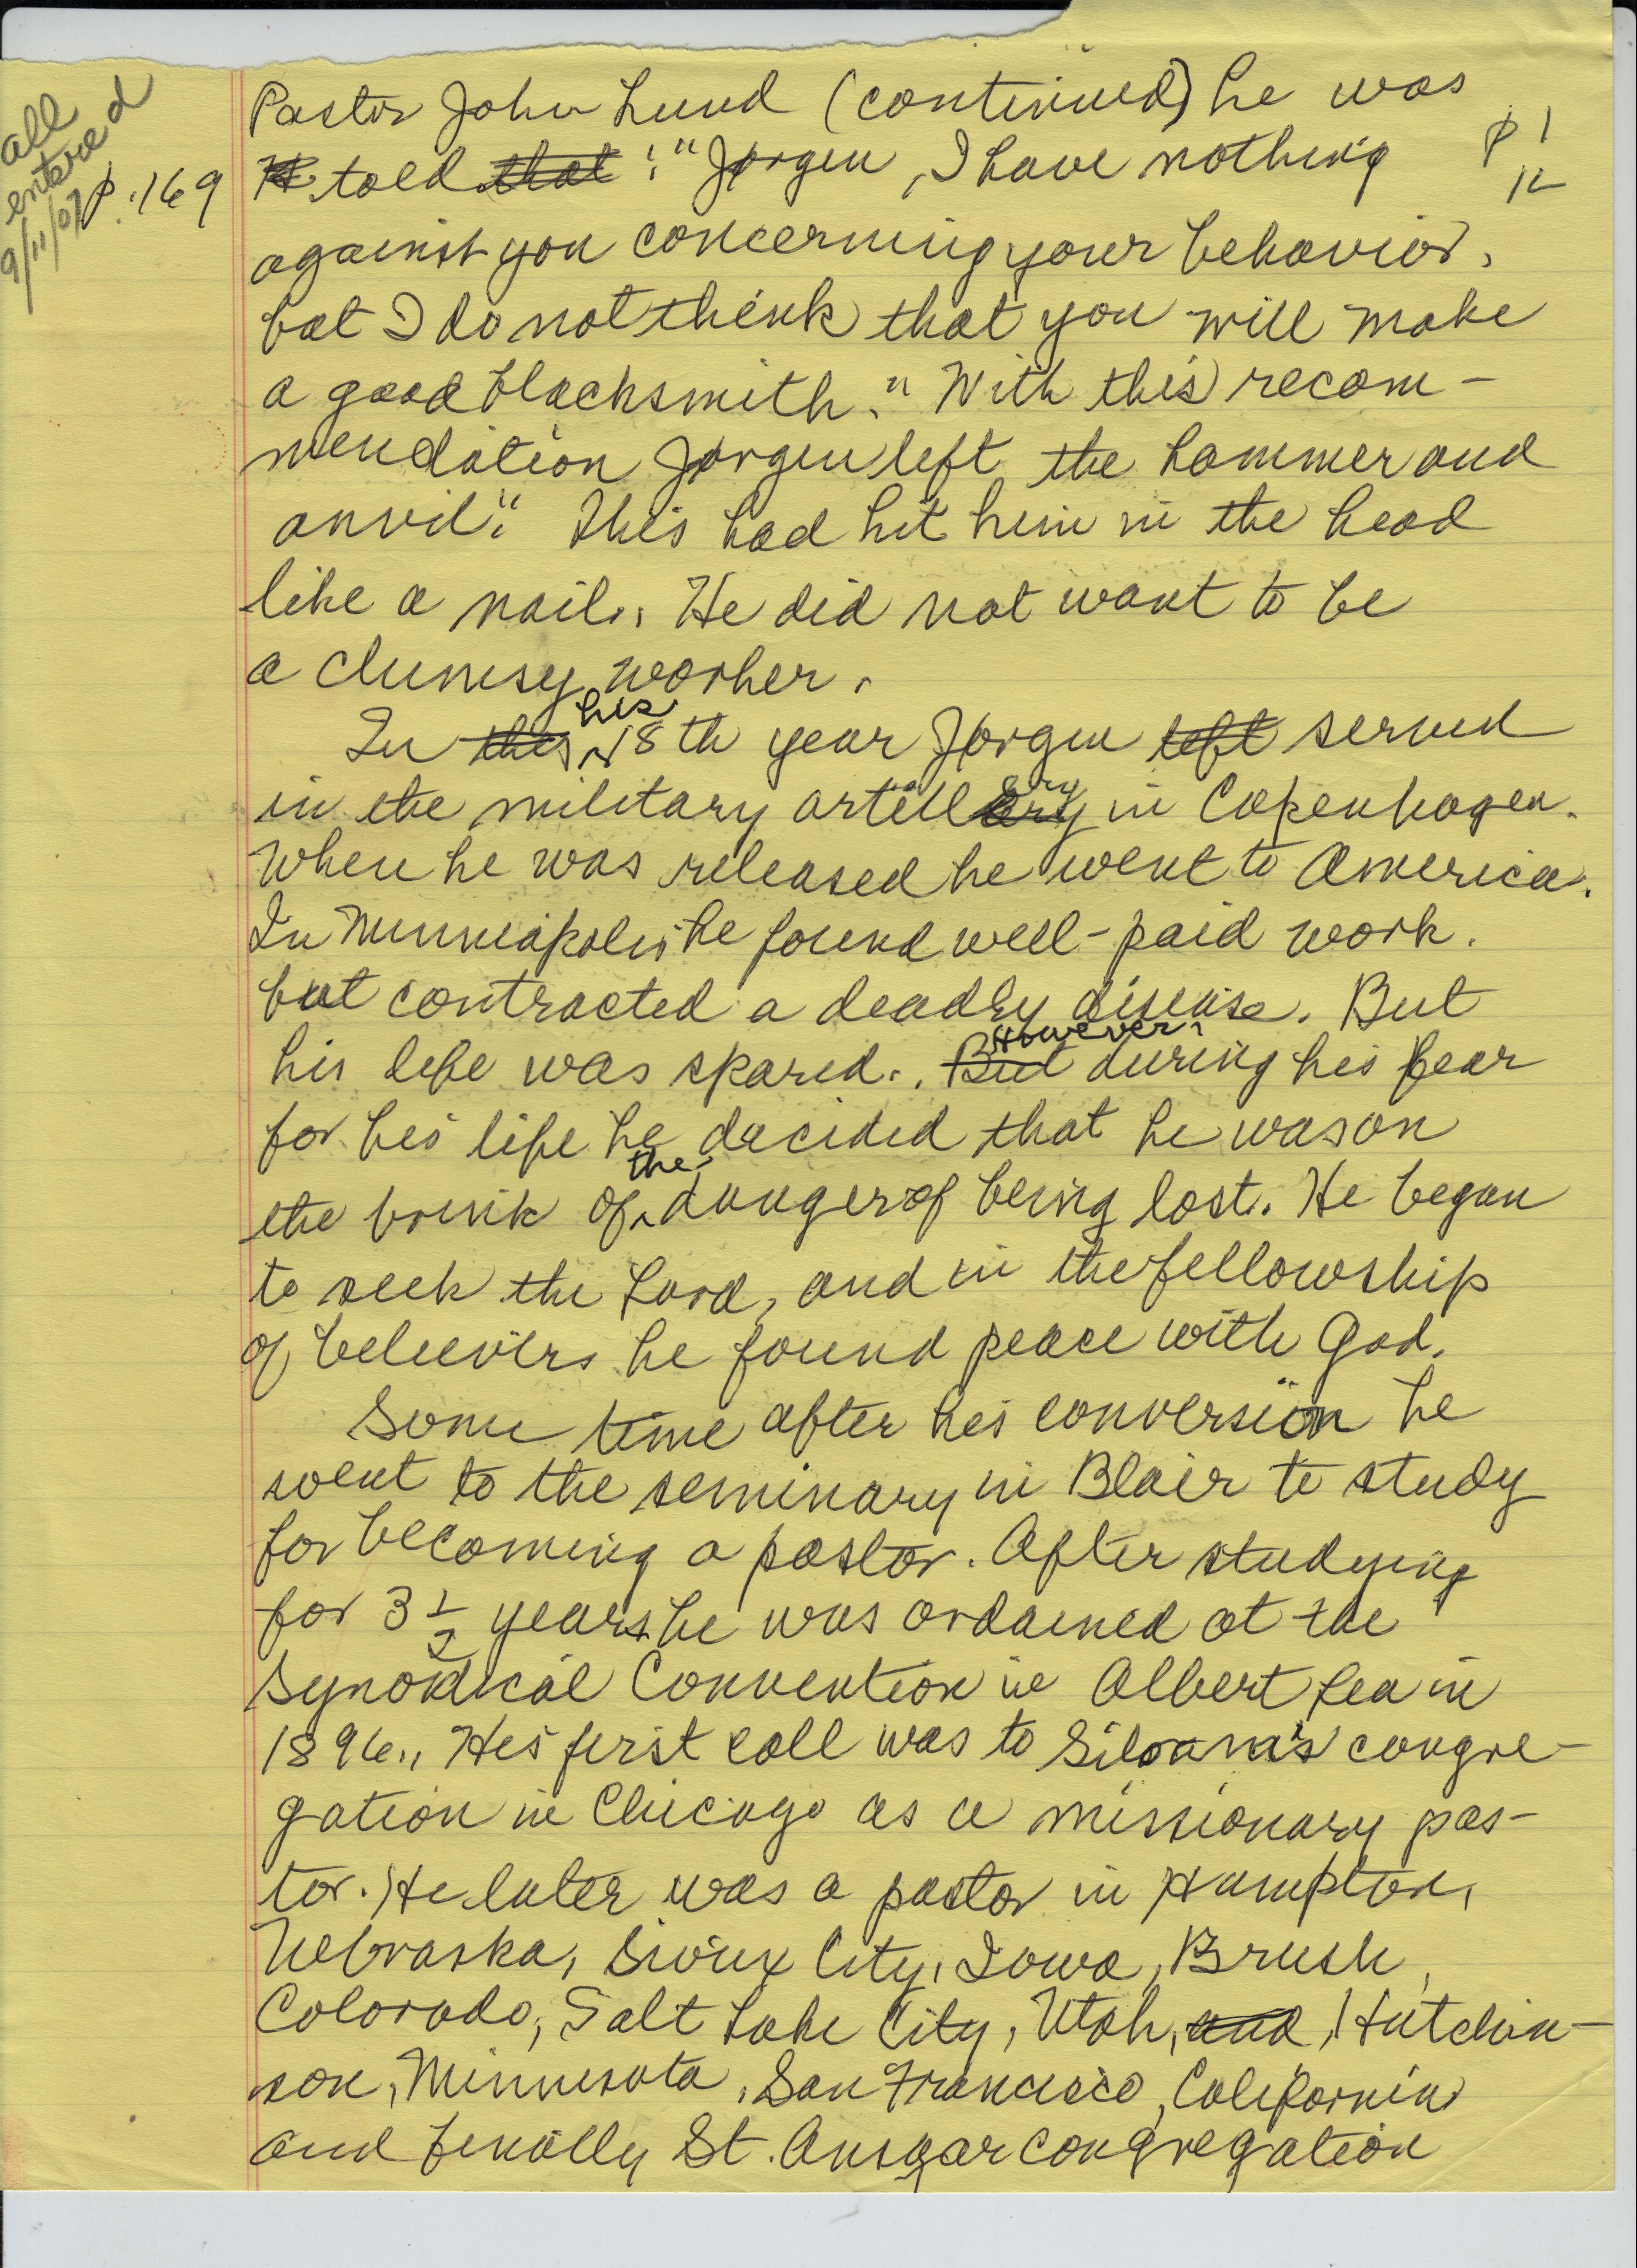 all
entered
9/11/07
p. 169
p 1
12
Pastor John Lund (continued) he was
H told that : "Jørgen, I have nothing
against you concerning your behavior,
but I do not think that you will make
a good blacksmith." With this recom-
mendation Jørgen left the hammer and
anvil." This had hit him in the head
like a nail. He did not want to be
a clumsy worker.
In this his 18th year Jørgen left served
in the military artillery in Copenhagen.
When he was released he went to America.
In Minneapolis he found well-paid work.
but contracted a deadly disease. But
his life was spared. But However, during his fear
for his life he decided that he was on
the brink of the danger of being lost. He began
to seek the Lord, and in the fellowship
of believers he found peace with God.
Some time after his conversion he
went to the seminary in Blair to study
for becoming a pastor. After studying
for 3 1/2 years he was ordained at the
Synodical Convention in Albert Lea in
1896., His first call was to Siloam's congre-
gation in Chicago as a missionary pas-
tor. He later was a pastor in Hampton,
Nebraska, Sioux City, Iowa, Brush,
Colorado, Salt Lake City, Utah, and, Hutchin-
son, Minnesota, San Francisco, California
and finally St. Ansgar congregation